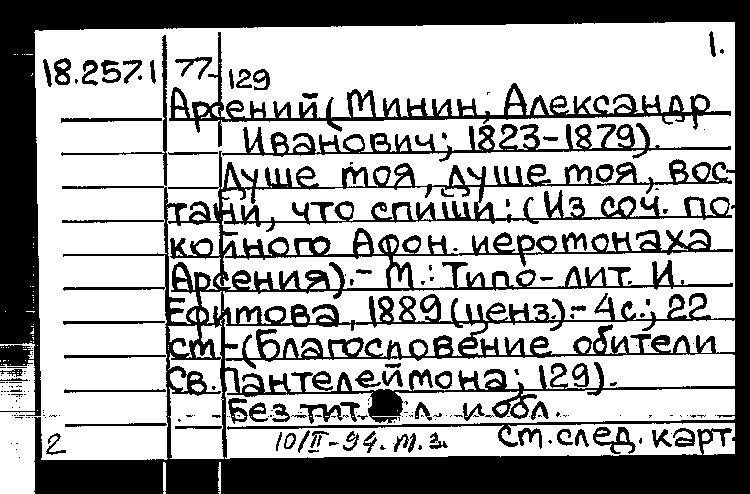 1.
18.257.1 77-129
Арсений (Минин, Александр
Иванович; 1823-1879).
Душе моя, душе моя, вос-
тани, что спиши: (Из соч. по-
койного Афон. иеромонаха
Арсения).- М.: Типо-лит. И.
Ефимова, 1889 (ценз.).- 4с.; 22
см.-(Благословение обители
Св. Пантелеймона; 129).
Без тит. л. и обл.
2 10/II-94. т.з. см. след. карт.